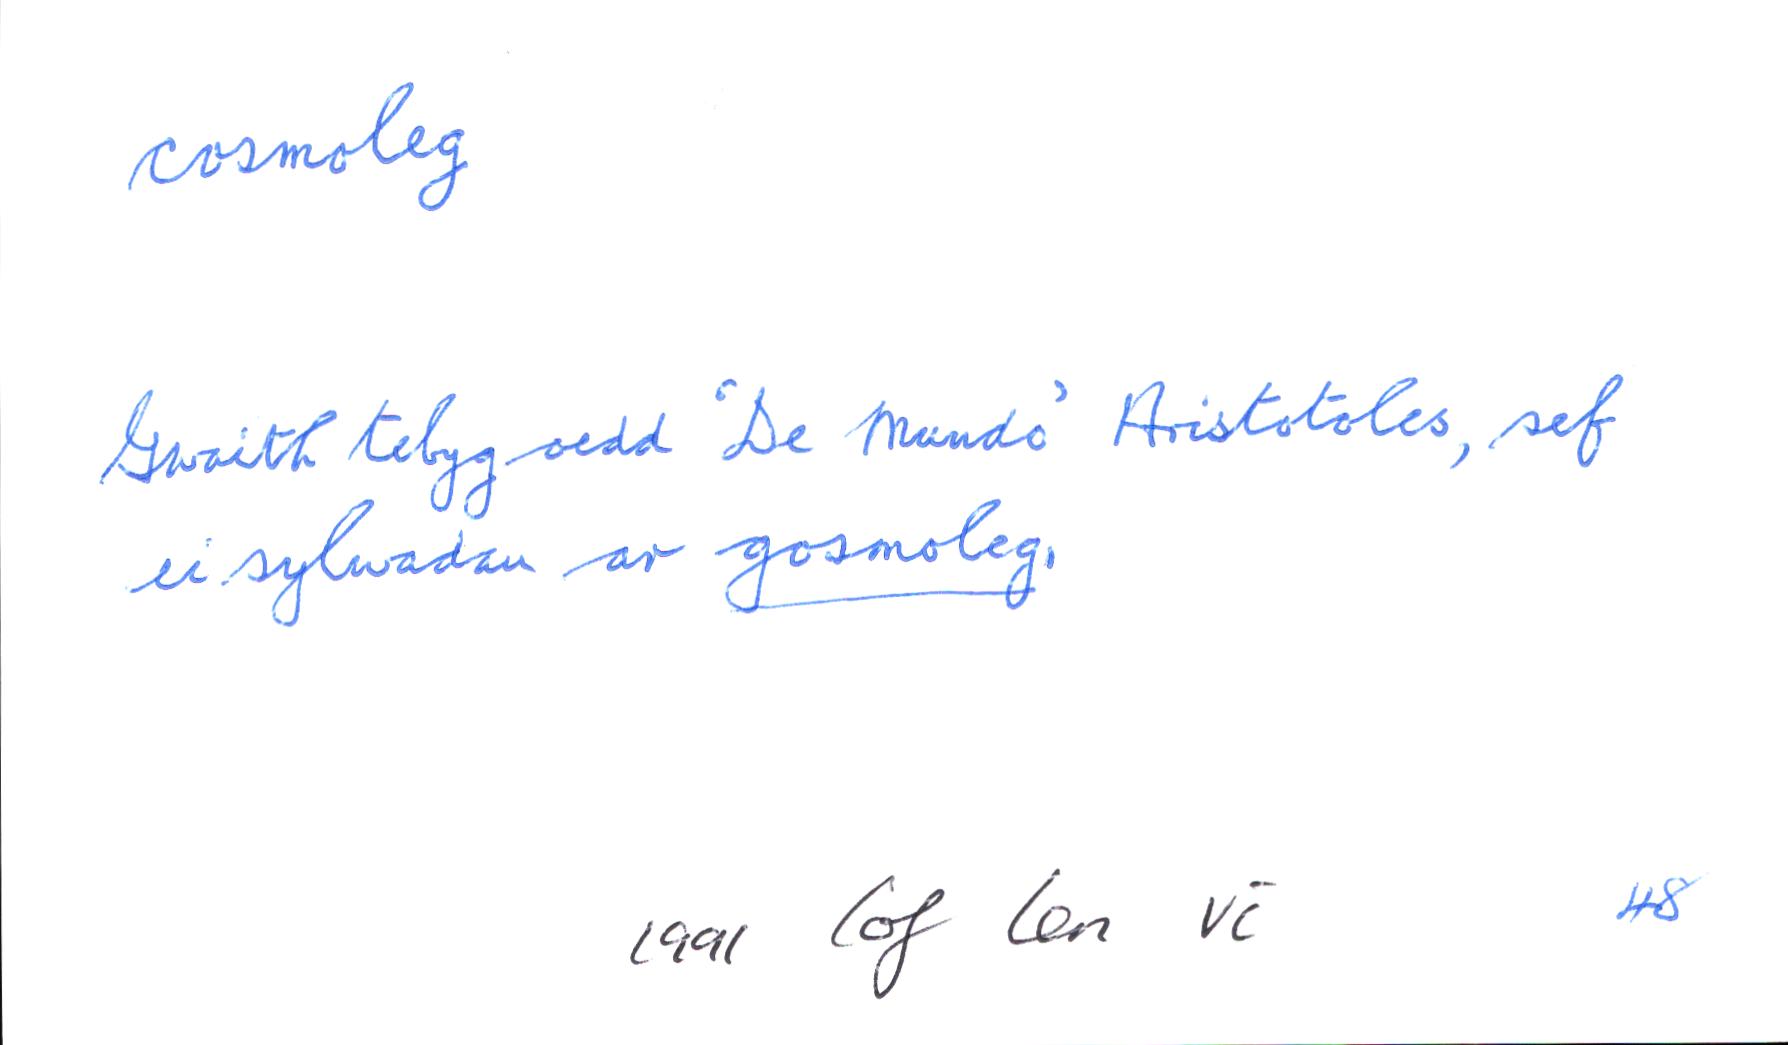 cosmoleg
Gwaith tebyg oedd 'De Mundo' Aristoteles, sef
ei sylwadau ar gosmoleg.
1991 Cof Cen vi 48